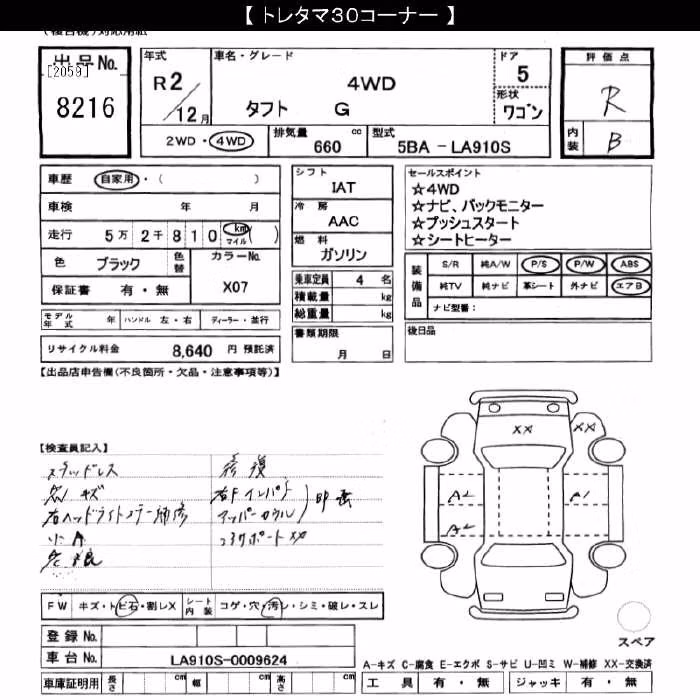 【 トレタマ30コーナー 】
出品No.
[2059]
8216
年式
R2/12月
車名・グレード
4WD
タフト G
ドア
5
形状
ワゴン
評価点
R
内装
B
2WD・4WD
排気量 660 cc
型式 5BA - LA910S
車歴 自家用・( )
車検 年 月
走行 5万 2千 8 1 0 km マイル ( )
色 ブラック 色替
カラーNo. X07
保証書 有・無
シフト
IAT
冷房
AAC
燃料
ガソリン
乗車定員 4 名
積載量 kg
総重量 kg
書類期限
月 日
セールスポイント
☆4WD
☆ナビ、バックモニター
☆プッシュスタート
☆シートヒーター
装備品
S/R 純A/W P/S P/W ABS
純TV 純ナビ 革シート 外ナビ エアB
ナビ型番:
後日品
モデル年式 年 ハンドル 左・右 ディーラー・並行
リサイクル料金 8,640 円 預託済
【出品店申告欄(不良箇所・欠品・注意事項等)】
【検査員記入】
スタッドレス
キズ
右ヘッドライト
小A
修復
右Fインパネ
アッパーカウル
コアサポートXX
XX
XX
A2
A1
A2
FW キズ・トビ石・割レX
シート内装 コゲ・穴・汚レ・シミ・破レ・スレ
登録No.
車台No. LA910S-0009624
スペア
A-キズ C-腐食 E-エクボ S-サビ U-凹ミ W-補修 XX-交換済
車庫証明用 長さ cm 幅 cm 高さ cm
工具 有・無 ジャッキ 有・無